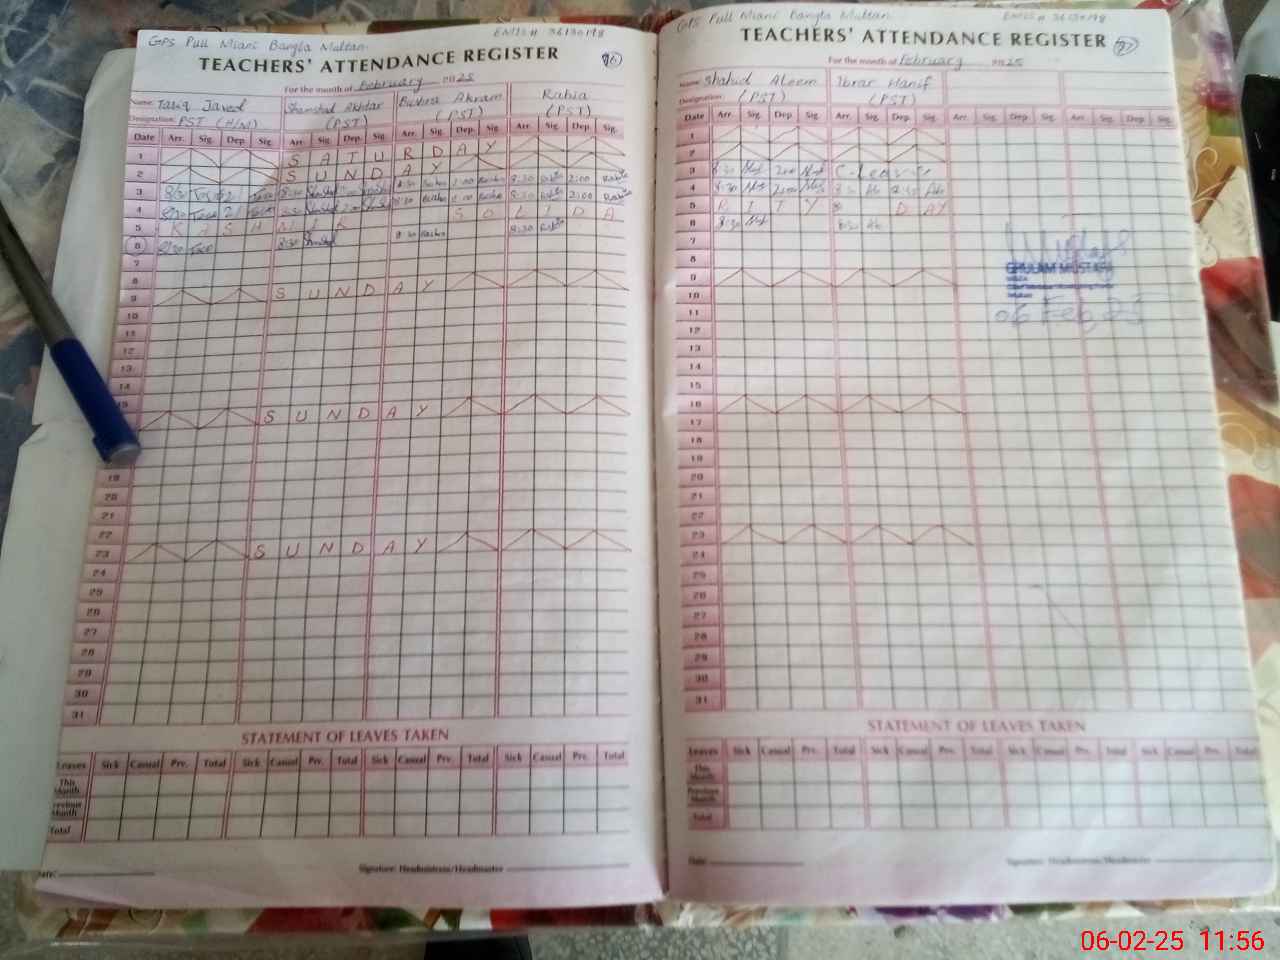 GPS Pull Miani Bangla Multan EMIS # 36130198
TEACHERS' ATTENDANCE REGISTER
For the month of February 2025
Name: Tariq Javed Shamshad Akhtar Bushra Akram Rabia
Designation: PST (H/M) (PST) (PST) (PST)
Date Arr. Sig. Dep. Sig. Arr. Sig. Dep. Sig. Arr. Sig. Dep. Sig. Arr. Sig. Dep. Sig.
1 SATURDAY
2 SUNDAY
3 8:30 8:30 8:30 2:00 8:30 2:00
4 8:30 8:30 8:30 8:30 2:00
5 KASHMIR SOLIDA
6 8:30 8:30 8:30 8:30
7
8
9 SUNDAY
10
11
12
13
14
SUNDAY
19
20
21
22
23 SUNDAY
24
25
26
27
28
29
30
31
STATEMENT OF LEAVES TAKEN
Leaves Sick Casual Prv. Total Sick Casual Prv. Total Sick Casual Prv. Total Sick Casual Prv. Total
This Month
Previous Month
Total
Date: Signature: Headmistress/Headmaster
GPS Pull Miani Bangla Multan EMIS # 36130198
TEACHERS' ATTENDANCE REGISTER
For the month of February 2025
Name: Shahid Aleem Ibrar Hanif
Designation: (PST) (PST)
Date Arr. Sig. Dep. Sig. Arr. Sig. Dep. Sig. Arr. Sig. Dep. Sig. Arr. Sig. Dep. Sig.
1
2
3 8:30 2:00 C-Leave
4 8:30 2:00 8:30
5 RITY DAY
6 8:30 8:30
7
8
9
10
11
12
13
14
15
16
17
18
19
20
21
22
23
24
25
26
27
28
29
30
31
GHULAM MUSTAFA
06 Feb 25
STATEMENT OF LEAVES TAKEN
Leaves Sick Casual Prv. Total Sick Casual Prv. Total Sick Casual Prv. Total Sick Casual Prv. Total
This Month
Previous Month
Total
Date: Signature: Headmistress/Headmaster
06-02-25 11:56